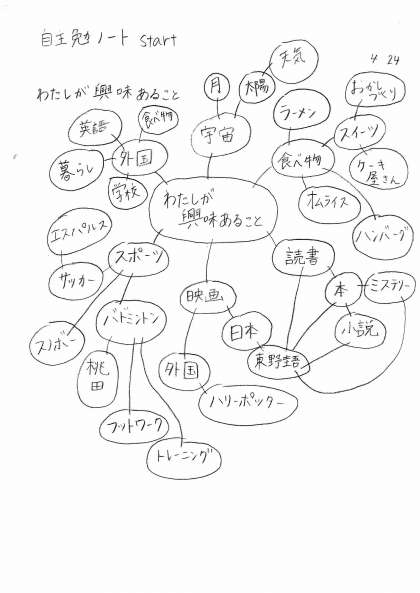 自主勉ノート start
4 24
わたしが興味あること
天気
月
太陽
宇宙
おかし
づくり
ラーメン
スイーツ
食べ物
ケーキ
屋さん
オムライス
ハンバーグ
英語
食べ物
外国
暮らし
学校
わたしが
興味あること
エスパルス
スポーツ
サッカー
スノボー
バドミントン
桃
田
フットワーク
トレーニング
映画
日本
外国
ハリーポッター
読書
本
ミステリー
小説
東野圭吾